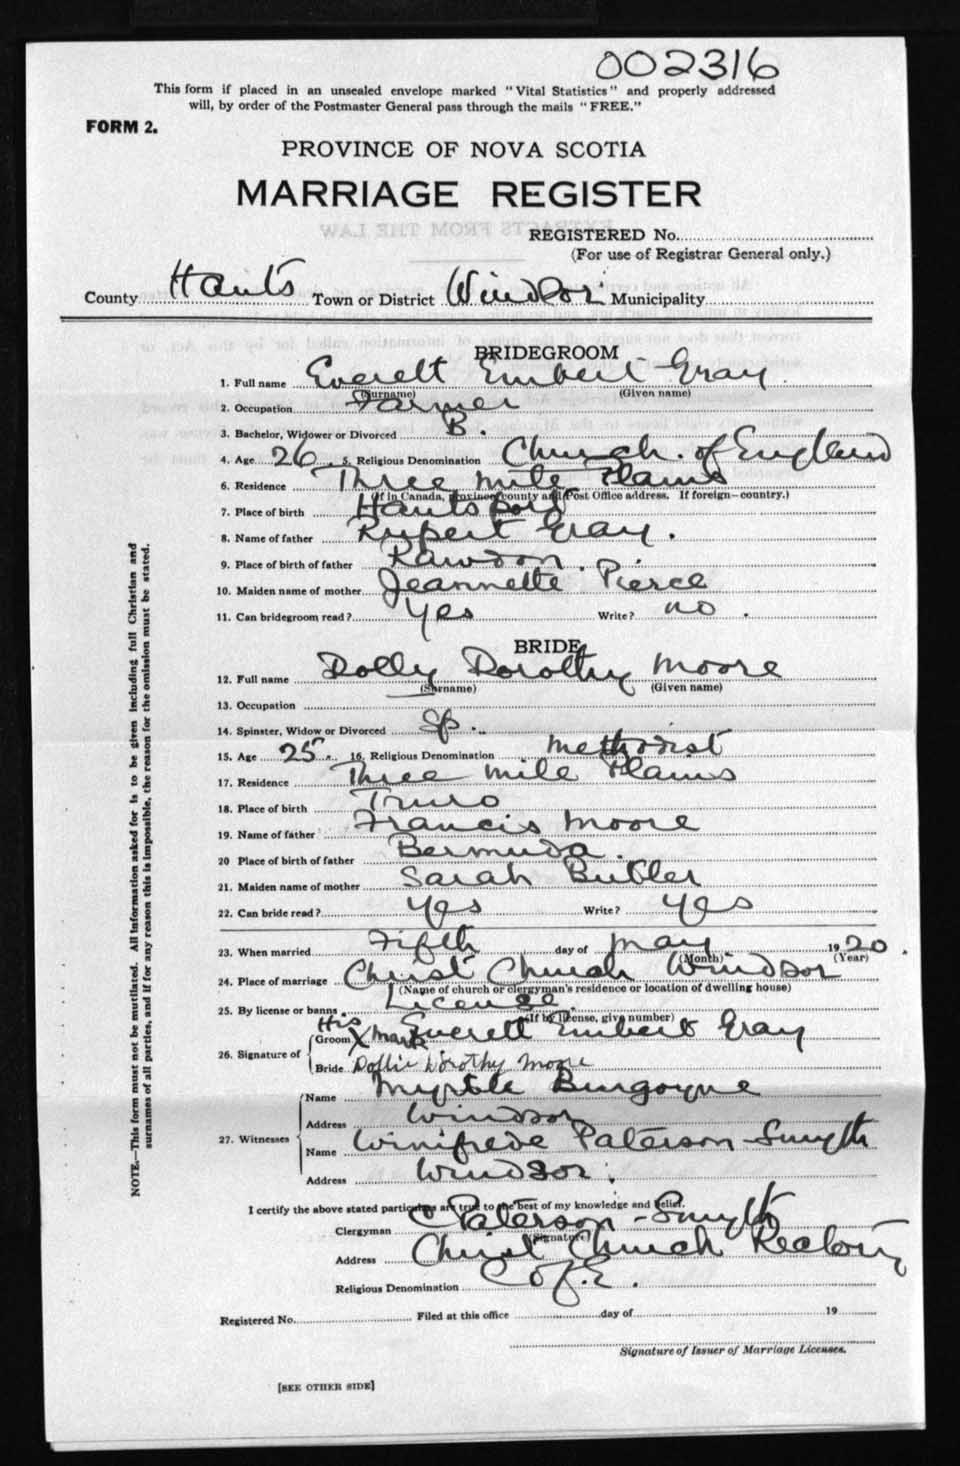 002316
This form if placed in an unsealed envelope marked "Vital Statistics" and properly addressed
will, by order of the Postmaster General pass through the mails "FREE."
FORM 2.
PROVINCE OF NOVA SCOTIA
MARRIAGE REGISTER
EXTRACTS FROM THE LAW
REGISTERED No.
(For use of Registrar General only.)
County Hants Town or District Windsor Municipality
BRIDEGROOM
1. Full name Everett Embert Gray
(Surname) (Given name)
2. Occupation Farmer
3. Bachelor, Widower or Divorced B.
4. Age 26. 5. Religious Denomination Church of England
6. Residence Three Mile Plains
(If in Canada, province, county and Post Office address. If foreign—country.)
7. Place of birth Hantsport
8. Name of father Rupert Gray.
9. Place of birth of father Rawdon.
10. Maiden name of mother Jeannette Pierce
11. Can bridegroom read? yes Write? no.
BRIDE
12. Full name Dolly Dorothy Moore
(Surname) (Given name)
13. Occupation
14. Spinster, Widow or Divorced Sp.
15. Age 25. 16. Religious Denomination Methodist
17. Residence Three Mile Plains
18. Place of birth Truro
19. Name of father Francis Moore
20 Place of birth of father Bermuda.
21. Maiden name of mother Sarah Butler
22. Can bride read? yes Write? yes
23. When married Fifth day of May 1920.
(Month) (Year)
24. Place of marriage Christ Church Windsor
(Name of church or clergyman's residence or location of dwelling house)
25. By license or banns License.
(If by license, give number)
26. Signature of
Groom His X Mark Everett Embert Gray
Bride Dollie Dorothy Moore
27. Witnesses
Name Myrtle Burgoyne
Address Windsor
Name Winifrede Paterson-Smyth
Address Windsor.
I certify the above stated particulars are true to the best of my knowledge and belief.
Clergyman C Paterson-Smyth
(Signature)
Address Christ Church Rectory
Religious Denomination C of E.
Registered No. Filed at this office day of 19
Signature of Issuer of Marriage Licenses.
[SEE OTHER SIDE]
NOTE.—This form must not be mutilated. All information asked for is to be given including full Christian and
surnames of all parties, and if for any reason this is impossible, the reason for the omission must be stated.